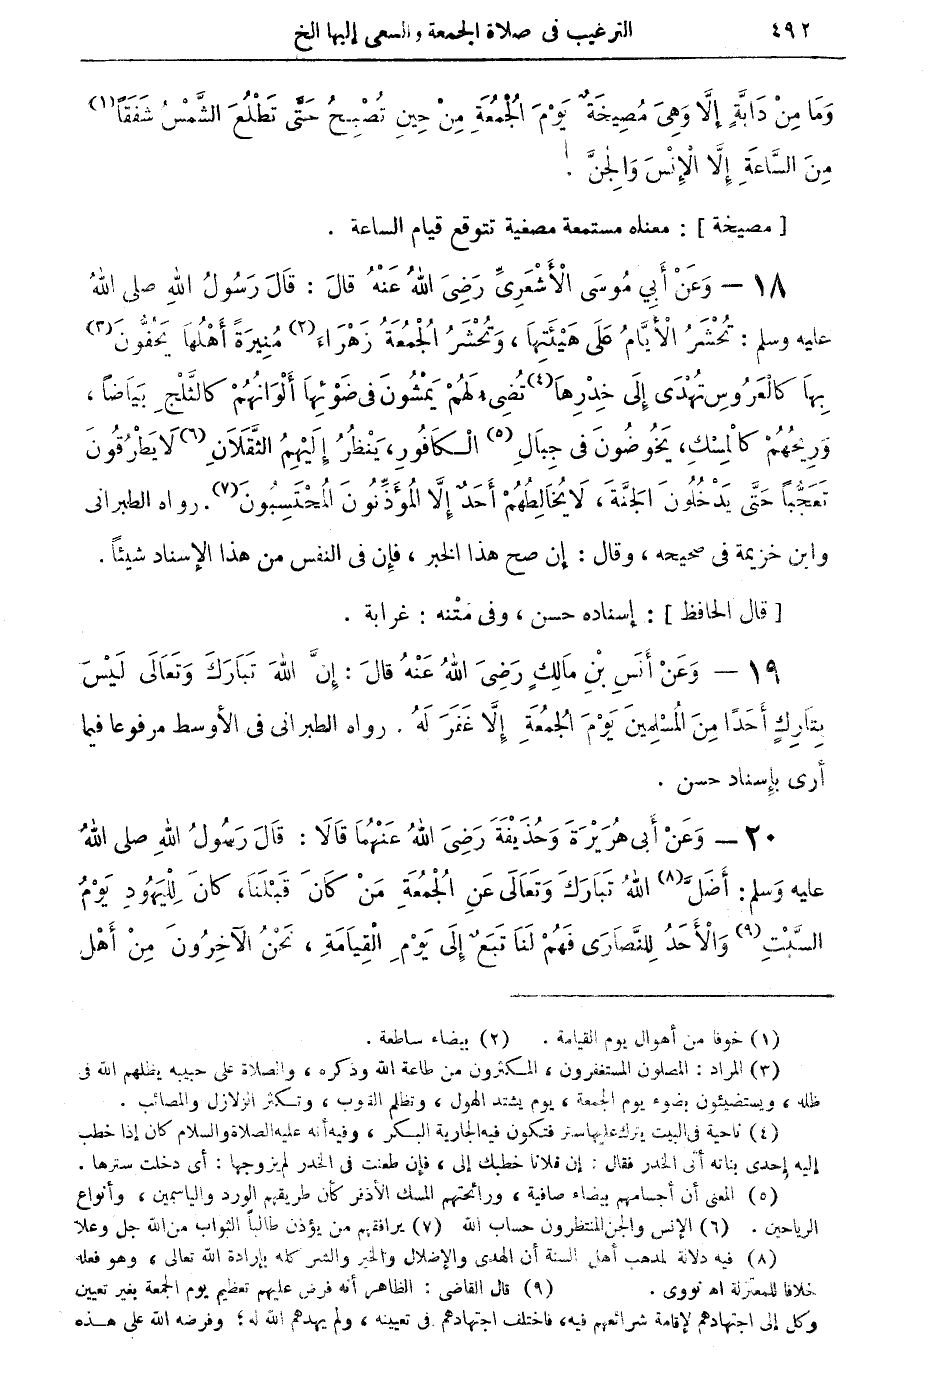 ٤٩٢ الترغيب فى صلاة الجمعة والسعى إليها الخ
وَمَا مِنْ دَابَّةٍ إِلَّا وَهِىَ مُصِيخَةٌ يَوْمَ الْجُمُعَةِ مِنْ حِينِ تُصْبِحُ حَتَّى تَطْلُعَ الشَّمْسُ شَفَقَاً (١)
مِنَ السَّاعَةِ إِلَّا الْإِنْسَ وَالْجِنَّ .
[ مصيخة ] : معناه مستمعة مصغية تتوقع قيام الساعة .
١٨ — وَعَنْ أَبِي مُوسَى الْأَشْعَرِىِّ رَضِىَ اللهُ عَنْهُ قالَ : قَالَ رَسُولُ اللهِ صلى اللهُ
عليه وسلم : تُحْشَرُ الْأَيَّامُ عَلَى هَيْئَتِهَا ، وَتُحْشَرُ الْجُمُعَةُ زَهْرَاءَ (٢) مُنِيرَةً أَهْلُهَا يَحُفُّونَ (٣)
بِهَا كالْعَرُوسِ تُهْدَى إِلَى خِدْرِهَا (٤) تُضِىءُ لَهُمْ يَمْشُونَ فِى ضَوْئِهَا أَلْوَانُهُمْ كالثَّلْجِ بَيَاضاً ،
وَرِيحُهُمْ كالْمِسْكِ، يَخُوضُونَ فى جِبَالِ (٥) الْكَافُورِ، يَنْظُرُ إِلَيْهِمُ الثَّقَلَانِ (٦) لَا يَطْرُقُونَ
تَعَجُّباً حَتَّى يَدْخُلُونَ الجَنَّةَ ، لَا يُخَالِطُهُمْ أَحَدٌ إِلَّا الْمُؤَذِّنُونَ الْمُحْتَسِبُونَ (٧) . رواه الطبرانى
وابن خزيمة فى صحيحه ، وقال : إن صح هذا الخبر ، فإن فى النفس من هذا الإسناد شيئاً .
[ قال الحافظ ] : إسناده حسن ، وفى مَتْنه : غرابة .
١٩ — وَعَنْ أَنَسِ بْنِ مَالِكٍ رَضِىَ اللهُ عَنْهُ قالَ : إِنَّ اللهَ تَبَارَكَ وَتَعَالَى لَيْسَ
بِتَارِكٍ أَحَدًا مِنَ الْمُسْلِمِينَ يَوْمَ الْجُمُعَةِ إِلَّا غَفَرَ لَهُ . رواه الطبرانى فى الأوسط مرفوعا فيما
أرى بإسناد حسن .
٢٠ — وَعَنْ أَبِى هُرَيْرَةَ وَحُذَيْفَةَ رَضِىَ اللهُ عَنْهُمَا قَالَا : قَالَ رَسُولُ اللهِ صلى اللهُ
عليه وَسلم : أَضَلَّ (٨) اللهُ تَبَارَكَ وَتَعَالَى عَنِ الْجُمُعَةِ مَنْ كَانَ قَبْلَنَا، كانَ لِلْيَهُودِ يَوْمُ
السَّبْتِ (٩) وَالْأَحَدُ لِلنَّصَارَى فَهُمْ لَنَا تَبَعٌ إِلَى يَوْمِ الْقِيَامَةِ ، نَحْنُ الْآخِرُونَ مِنْ أَهْلِ
(١) خوفا من أهوال يوم القيامة . (٢) بيضاء ساطعة .
(٣) المراد : المصلون المستغفرون ، المكثرون من طاعة الله وذكره ، والصلاة على حبيبه يظلهم الله فى
ظله ، ويستضيئون بضوء يوم الجمعة ، يوم يشتد الهول ، وتظلم القلوب ، وتكثر الزلازل والمصائب .
(٤) ناحية فى البيت يترك عليها ستر فتكون فيه الجارية البكر ، وفيه أنه عليه الصلاة والسلام كان إذا خطب
إليه إحدى بناته أتى الخدر فقال : إن فلانا خطبك إلى ، فإن طعنت فى الخدر لم يزوجها : أى دخلت سترها .
(٥) المعنى أن أجسامهم بيضاء صافية ، ورائحتهم المسك الأذفر كأن طريقهم الورد والياسمين ، وأنواع
الرياحين . (٦) الإنس والجن المنتظرون حساب الله (٧) يرافقهم من يؤذن طالباً الثواب من الله جل وعلا
(٨) فيه دلالة لمذهب أهل السنة أن الهدى والإضلال والخير والشر كله بإرادة الله تعالى ، وهو فعله
خلافا للمعتزلة اه نووى . (٩) قال القاضى : الظاهر أنه فرض عليهم تعظيم يوم الجمعة بغير تعيين
وكل إلى اجتهادهم لإقامة شرائعهم فيه، فاختلف اجتهادهم فى تعيينه ، ولم يهدهم الله له ؛ وفرضه الله على هذه